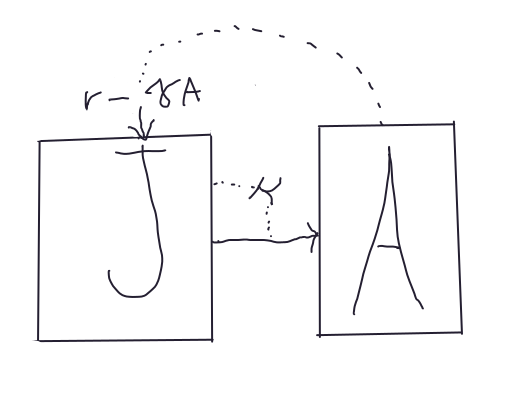 r - γA
J
κ
A